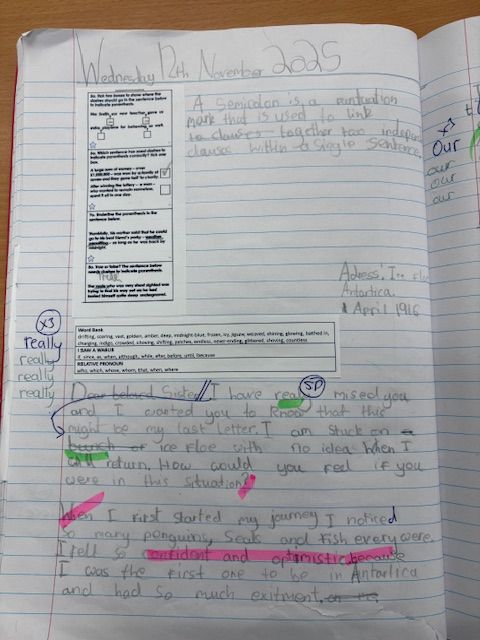 Wednesday 12th November 2025
5a. Tick two boxes to show where the
dashes should go in the sentence below
to indicate parenthesis.
Mrs Smith our new teacher gave us
extra playtime for behaving so well.
6a. Which sentence has used dashes to
indicate parenthesis correctly? Tick one
box.
A large sum of money – over
£1,000,000 – was won by a family of
seven and they gave half to charity.
After winning the lottery – a man –
who wanted to remain anonymous,
spent it all in one day.
7a. Underline the parenthesis in the
sentence below.
Thankfully, his mother said that he could
go to his best friend's party –
– as long as he was back by
midnight.
8a. True or false? The sentence below
needs dashes to indicate parenthesis.
True
The mole who was very short sighted was
trying to find his way out as he had
locked himself safe deep underground.
A Semicolon is a puntuation
mark that is used to link
to clauses together two indepen
clauses within a single sentence
Adress: Ice floe
Antartica.
1 April 1916
Word Bank
drifting, soaring, vast, golden, amber, deep, midnight-blue, frozen, icy, jigsaw, weaved, shining, glowing, bathed in,
charging, indigo, crowded, shoving, shifting, patches, endless, never-ending, glittered, shining, countless
I SAW A WABUB
if, since, as, when, although, while, after, before, until, because
RELATIVE PRONOUN
who, which, whose, whom, that, when, where
x3
really
really
really
really
Dear beloved Sister// I have realy SP missed you
and I wanted you to know that this
might be my last letter. I am stuck on a
bunch of ice floe with no idea when I
will return. How would you feel if you
were in this situation?
When I first started my journey I noticed
so many penguins, Seals and fish every were.
I fell so confident and optimistic because
I was the first one to be in Antartica
and had so much exitment.
x3
Our
our
our
our